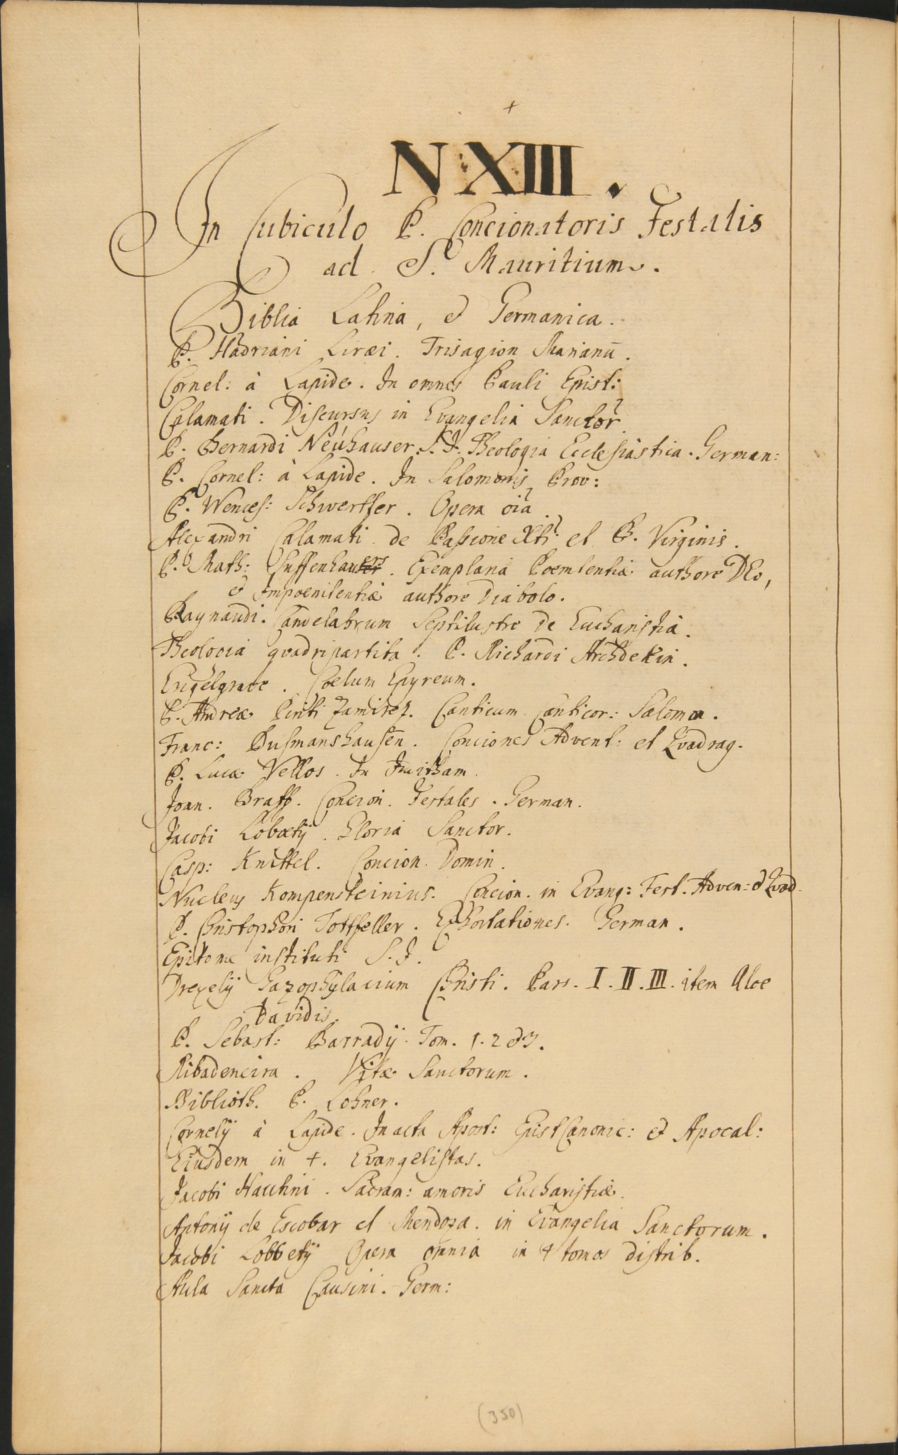 +
N: XIII.
In Cubiculo P. Concionatoris Festalis
ad S. Mauritium.
Biblia Latina, et Germanica.
P. Hadriani Liræi. Trisagion Marianū.
Cornel: à Lapide. In omnes Pauli Epist:
Calamati. Discursus in Evangelia Sanctor
P. Bernardi Neúhauser. S.J. Theologia Ecclesiastica. German:
P. Cornel: à Lapide. In Salomonis Prov:
P. Wences: Schwertfer. Opera oia.
Alexandri Calamati de Passione Xti et B. Virginis.
P. Math: Exemplaria Poenitentiæ authore DEo,
et Impoenitentiæ authore Diabolo.
Raynaudi. Candelabrum Septilustre De Eucharistia.
Theolocia qvadripartita. P. Richardi Archdekin.
Engelgrave. Coelum Epyreum.
P. Andreæ Pinti Ramirez. Canticum Canticor: Salomon.
Franc: Busmanshausen. Conciones Advent: et Qvadrag.
P. Lucæ Vellos. In Juditham.
Joan. Concion. Festales. German.
Jacobi Lobætÿ. Gloria Sanctor.
Casp: Knittel. Concion. Domin.
Nucleus Kompensteinius. Concion. in Evang: Fest. Adven: et Qvad.
P. Christophori Tottfeller. Exhortationes. German.
Epitome instituti S.J.
Drexelÿ Gazophylacium Christi. Pars. I. II. III. item Aloe
Davidis
P. Sebast: Barradÿ. Tom. 1. 2 et 3.
Ribadeneira. Vitæ Sanctorum.
Biblioth. P. Lohner.
Cornelÿ à Lapide. In acta Apost: Epist Canonic: et Apocal:
Eiusdem in 4. Evangelistas.
Jacobi Hautini. Sacram: amoris Eucharistiæ.
Antonÿ de Escobar et Mendoza. in Evangelia Sanctorum.
Jacobi Lobbetÿ Opera omnia in 4 tomos distrib.
Aula Sancta Causini. Germ:
(350)